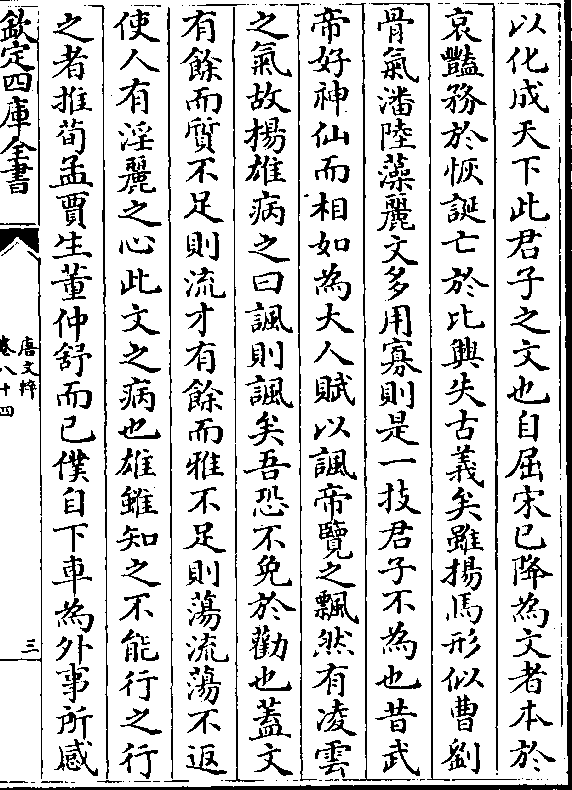 以化成天下此君子之文也自屈宋已降為文者本於
哀豔務於恢誕亡於比興失古義矣雖揚馬形似曹劉
骨氣潘陸藻麗文多用寡則是一技君子不為也昔武
帝好神仙而相如為大人賦以諷帝覽之飄然有凌雲
之氣故揚雄病之曰諷則諷矣吾恐不免於勸也蓋文
有餘而質不足則流才有餘而雅不足則蕩流蕩不返
使人有淫麗之心此文之病也雄雖知之不能行之行
之者推荀孟賈生董仲舒而已僕自下車為外事所感
欽定四庫全書
唐文粹
卷八十四
三